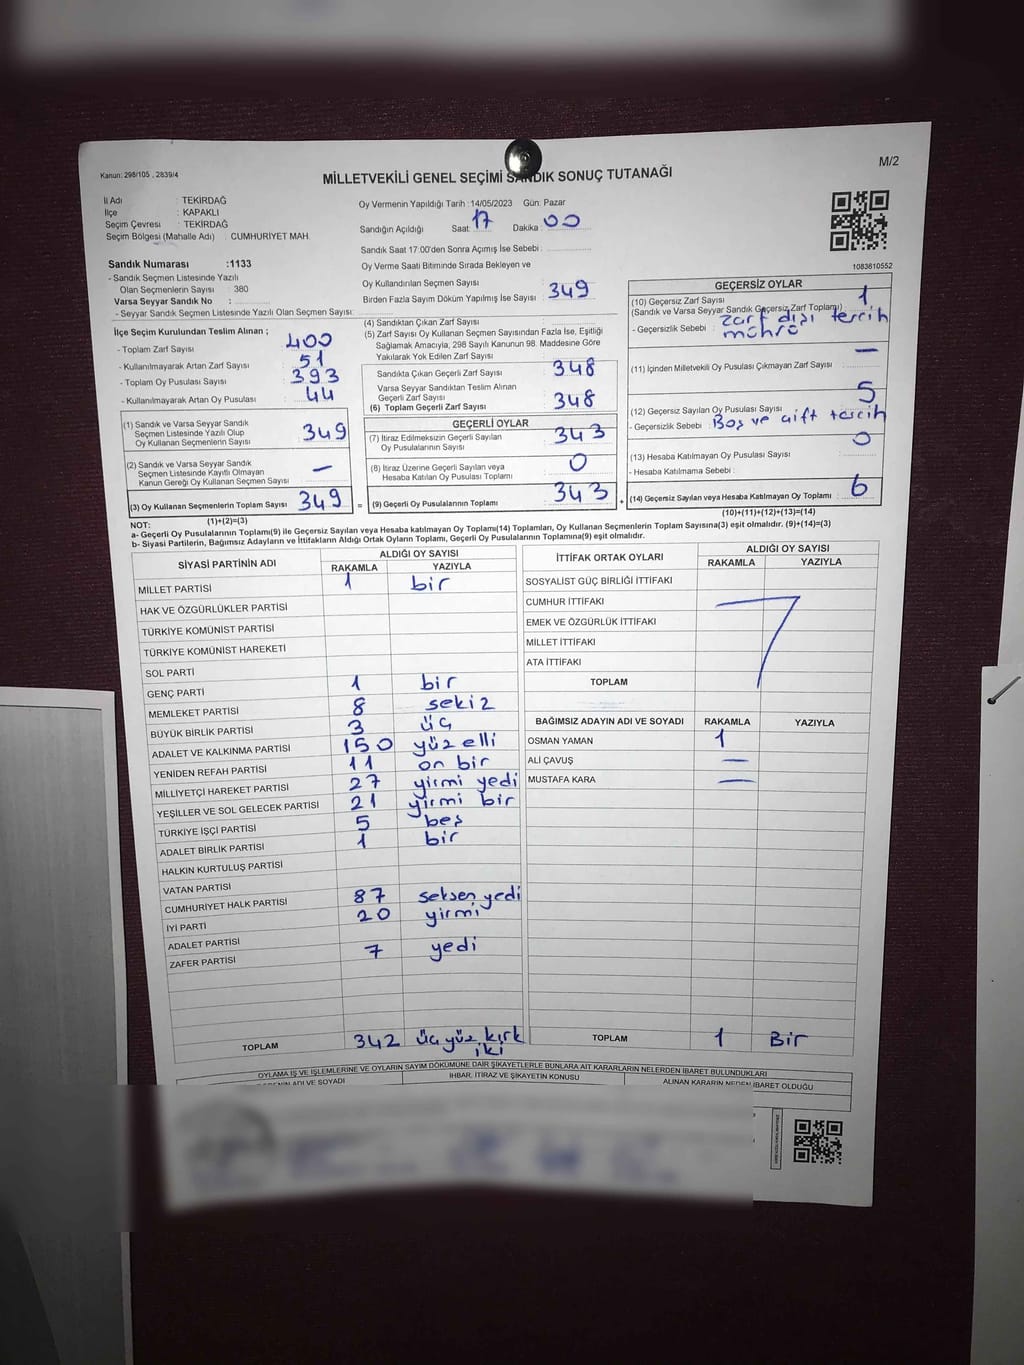 Kanun: 298/105 , 2839/4
M/2
MİLLETVEKİLİ GENEL SEÇİMİ SANDIK SONUÇ TUTANAĞI
İl Adı : TEKİRDAĞ
İlçe : KAPAKLI
Seçim Çevresi : TEKİRDAĞ
Seçim Bölgesi (Mahalle Adı) : CUMHURİYET MAH.
Sandık Numarası :1133
- Sandık Seçmen Listesinde Yazılı
Olan Seçmenlerin Sayısı : 380
Varsa Seyyar Sandık No :
- Seyyar Sandık Seçmen Listesinde Yazılı Olan Seçmen Sayısı:
Oy Vermenin Yapıldığı Tarih :14/05/2023 Gün: Pazar
Sandığın Açıldığı Saat: 17 Dakika: 00
Sandık Saat 17:00'den Sonra Açımış İse Sebebi :
Oy Verme Saati Bitiminde Sırada Bekleyen ve
Oy Kullandırılan Seçmen Sayısı : 349
Birden Fazla Sayım Döküm Yapılmış İse Sayısı :
1083610552
İlçe Seçim Kurulundan Teslim Alınan ;
- Toplam Zarf Sayısı : 400
- Kullanılmayarak Artan Zarf Sayısı : 51
- Toplam Oy Pusulası Sayısı : 393
- Kullanılmayarak Artan Oy Pusulası : 44
(1) Sandık ve Varsa Seyyar Sandık
Seçmen Listesinde Yazılı Olup
Oy Kullanan Seçmenlerin Sayısı : 349
(2) Sandık ve Varsa Seyyar Sandık
Seçmen Listesinde Kayıtlı Olmayan
Kanun Gereği Oy Kullanan Seçmen Sayısı : –
(3) Oy Kullanan Seçmenlerin Toplam Sayısı : 349
(1)+(2)=(3)
(4) Sandıktan Çıkan Zarf Sayısı :
(5) Zarf Sayısı Oy Kullanan Seçmen Sayısından Fazla İse, Eşitliği
Sağlamak Amacıyla, 298 Sayılı Kanunun 98. Maddesine Göre
Yakılarak Yok Edilen Zarf Sayısı :
Sandıkta Çıkan Geçerli Zarf Sayısı : 348
Varsa Seyyar Sandıktan Teslim Alınan
Geçerli Zarf Sayısı :
(6) Toplam Geçerli Zarf Sayısı : 348
GEÇERLİ OYLAR
(7) İtiraz Edilmeksizin Geçerli Sayılan
Oy Pusulalarının Sayısı : 343
(8) İtiraz Üzerine Geçerli Sayılan veya
Hesaba Katılan Oy Pusulası Toplamı : 0
= (9) Geçerli Oy Pusulalarının Toplamı : 343 +
GEÇERSİZ OYLAR
(10) Geçersiz Zarf Sayısı
(Sandık ve Varsa Seyyar Sandık Geçersiz Zarf Toplamı) : 1
- Geçersizlik Sebebi : Zarf dışı tercih
mührü
(11) İçinden Milletvekili Oy Pusulası Çıkmayan Zarf Sayısı : –
(12) Geçersiz Sayılan Oy Pusulası Sayısı : 5
- Geçersizlik Sebebi : Boş ve çift tercih
(13) Hesaba Katılmayan Oy Pusulası Sayısı : 0
- Hesaba Katılmama Sebebi :
(14) Geçersiz Sayılan veya Hesaba Katılmayan Oy Toplamı : 6
(10)+(11)+(12)+(13)=(14)
NOT:
a- Geçerli Oy Pusulalarının Toplamı(9) ile Geçersiz Sayılan veya Hesaba katılmayan Oy Toplamı(14) Toplamları, Oy Kullanan Seçmenlerin Toplam Sayısına(3) eşit olmalıdır. (9)+(14)=(3)
b- Siyasi Partilerin, Bağımsız Adayların ve İttifakların Aldığı Ortak Oyların Toplamı, Geçerli Oy Pusulalarının Toplamına(9) eşit olmalıdır.
SİYASİ PARTİNİN ADI ALDIĞI OY SAYISI
RAKAMLA YAZIYLA
MİLLET PARTİSİ 1 bir
HAK VE ÖZGÜRLÜKLER PARTİSİ
TÜRKİYE KOMÜNİST PARTİSİ
TÜRKİYE KOMÜNİST HAREKETİ
SOL PARTİ
GENÇ PARTİ 1 bir
MEMLEKET PARTİSİ 8 sekiz
BÜYÜK BİRLİK PARTİSİ 3 üç
ADALET VE KALKINMA PARTİSİ 150 yüz elli
YENİDEN REFAH PARTİSİ 11 on bir
MİLLİYETÇİ HAREKET PARTİSİ 27 yirmi yedi
YEŞİLLER VE SOL GELECEK PARTİSİ 21 yirmi bir
TÜRKİYE İŞÇİ PARTİSİ 5 beş
ADALET BİRLİK PARTİSİ 1 bir
HALKIN KURTULUŞ PARTİSİ
VATAN PARTİSİ
CUMHURİYET HALK PARTİSİ 87 seksen yedi
İYİ PARTİ 20 yirmi
ADALET PARTİSİ
ZAFER PARTİSİ 7 yedi
TOPLAM 342 üç yüz kırk
iki
İTTİFAK ORTAK OYLARI ALDIĞI OY SAYISI
RAKAMLA YAZIYLA
SOSYALİST GÜÇ BİRLİĞİ İTTİFAKI
CUMHUR İTTİFAKI
EMEK VE ÖZGÜRLÜK İTTİFAKI
MİLLET İTTİFAKI
ATA İTTİFAKI
TOPLAM
BAĞIMSIZ ADAYIN ADI VE SOYADI RAKAMLA YAZIYLA
OSMAN YAMAN 1
ALİ ÇAVUŞ –
MUSTAFA KARA –
TOPLAM 1 Bir
OYLAMA İŞ VE İŞLEMLERİNE VE OYLARIN SAYIM DÖKÜMÜNE DAİR ŞİKAYETLERLE BUNLARA AİT KARARLARIN NELERDEN İBARET BULUNDUKLARI
ADI VE SOYADI İHBAR, İTİRAZ VE ŞİKAYETİN KONUSU ALINAN KARARIN NEDEN İBARET OLDUĞU